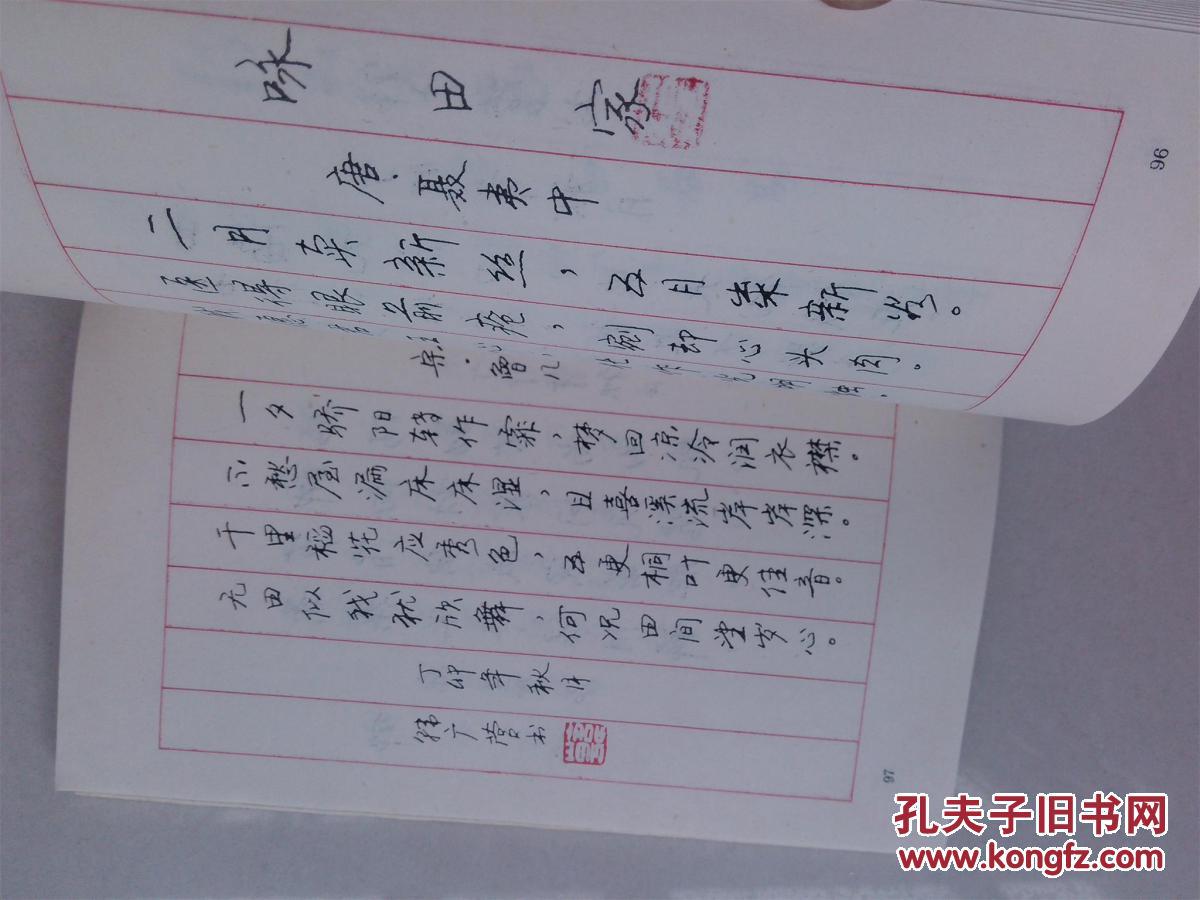 咏田家
唐·聂夷中
二月卖新丝，五月粜新谷。
医得眼前疮，剜却心头肉。
96
宋·曾几
一夕骄阳转作霖，梦回凉冷润衣襟。
不愁屋漏床床湿，且喜溪流岸岸深。
千里稻花应秀色，五更桐叶更佳音。
无田似我犹欣舞，何况田间望岁心。
丁卯年秋月
韩广营书
97
孔夫子旧书网
www.kongfz.com